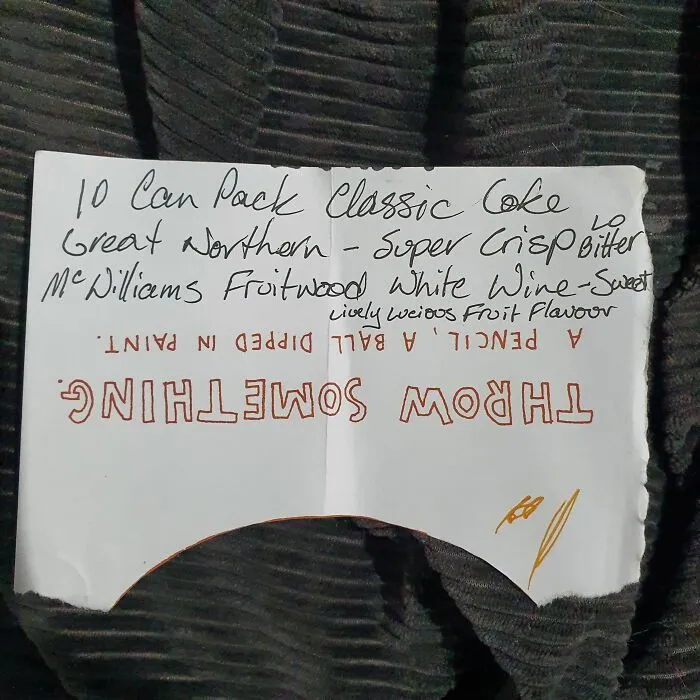 10 Can Pack Classic Coke
Great Northern - Super Crisp Lo Bitter
McWilliams Fruitwood White Wine - Sweet
Lively Lucious Fruit Flavour
THROW SOMETHING.
A PENCIL, A BALL DIPPED IN PAINT.